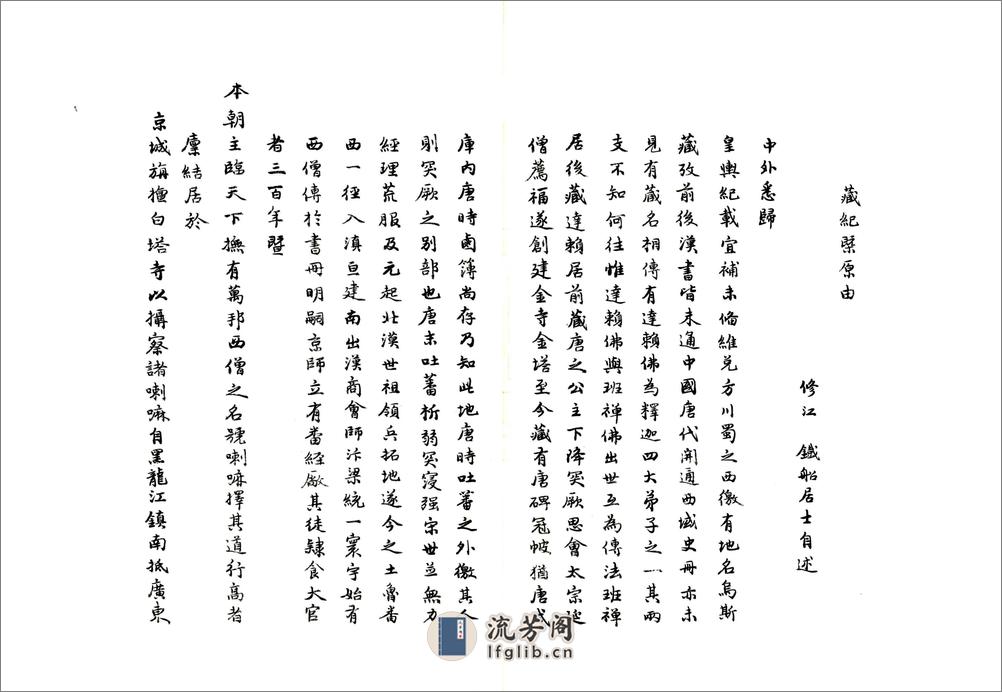 藏紀槩原由
修江 鐵船居士自述
中外悉歸
皇輿紀載宜補未備維兌方川蜀之西徼有地名烏斯
藏攷前後漢書皆未通中國唐代開通西域史冊亦未
見有藏名相傳有達賴佛為釋迦四大弟子之一其兩
支不知何往惟達賴佛與班禅佛出世互為傳法班禅
居後藏達賴居前藏唐之公主下降突厥思會太宗延
僧薦福遂創建金寺金塔至今藏有唐碑冠帔猶唐式
庫內唐時鹵簿尚存乃知此地唐時吐蕃之外徼其人
則突厥之別部也唐末吐蕃析弱突寖强宗世並無力
經理荒服及元起北漢世祖領兵拓地遂今之土魯番
西一徑入滇亘建南出漢商會師汴梁統一寰宇始有
西僧傳於書冊明嗣京師立有番經厰其徒隸食大官
者三百年暨
本朝主臨天下撫有萬邦西僧之名號喇嘛擇其道行高者
廩結居於
京城旃檀白塔寺以攝察諸喇嘛自黑龍江鎮南抵廣東
流芳阁
lfglib.cn